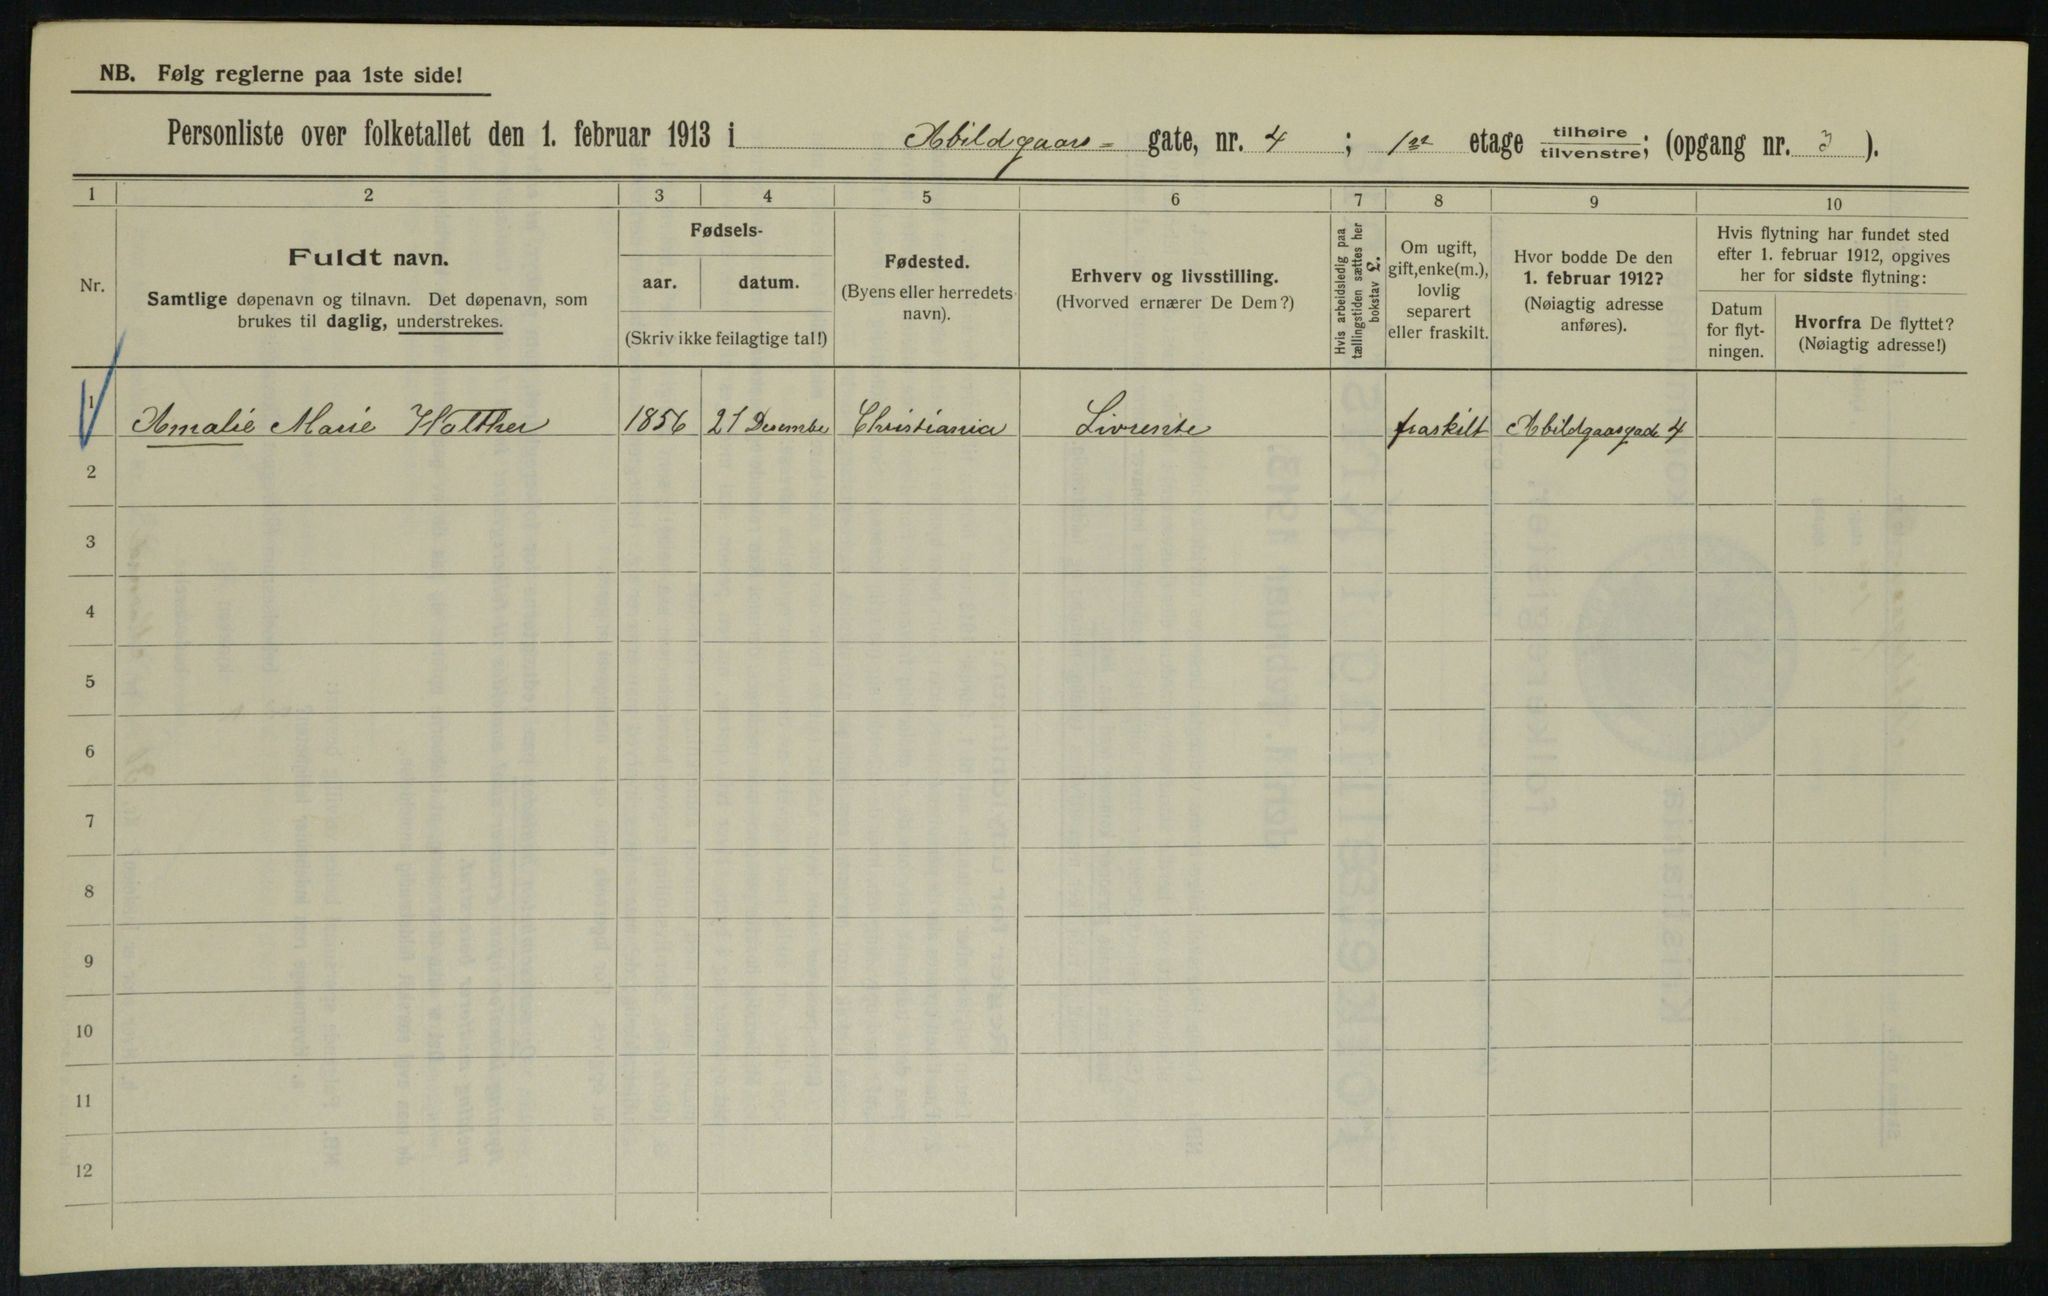 NB. Følg reglerne paa 1ste side!
Personliste over folketallet den 1. februar 1913 i Abildgaars- gate, nr. 4 ; 1ste etage tilhøire/tilvenstre; (opgang nr. 3 ).
1 2 3 4 5 6 7 8 9 10
Nr.
Fuldt navn.
Samtlige døpenavn og tilnavn. Det døpenavn, som
brukes til daglig, understrekes.
Fødsels-
aar. datum.
(Skriv ikke feilagtige tal!)
Fødested.
(Byens eller herredets
navn).
Erhverv og livsstilling.
(Hvorved ernærer De Dem?)
Hvis arbeidsledig paa
tællingstiden sættes her
bokstav L.
Om ugift,
gift, enke(m.),
lovlig
separert
eller fraskilt.
Hvor bodde De den
1. februar 1912?
(Nøiagtig adresse
anføres).
Hvis flytning har fundet sted
efter 1. februar 1912, opgives
her for sidste flytning:
Datum
for flyt-
ningen.
Hvorfra De flyttet?
(Nøiagtig adresse!)
1 Amalie Marie 1856 21 Desembe Christiania Livrente fraskilt Abildgaarsgade 4
2
3
4
5
6
7
8
9
10
11
12